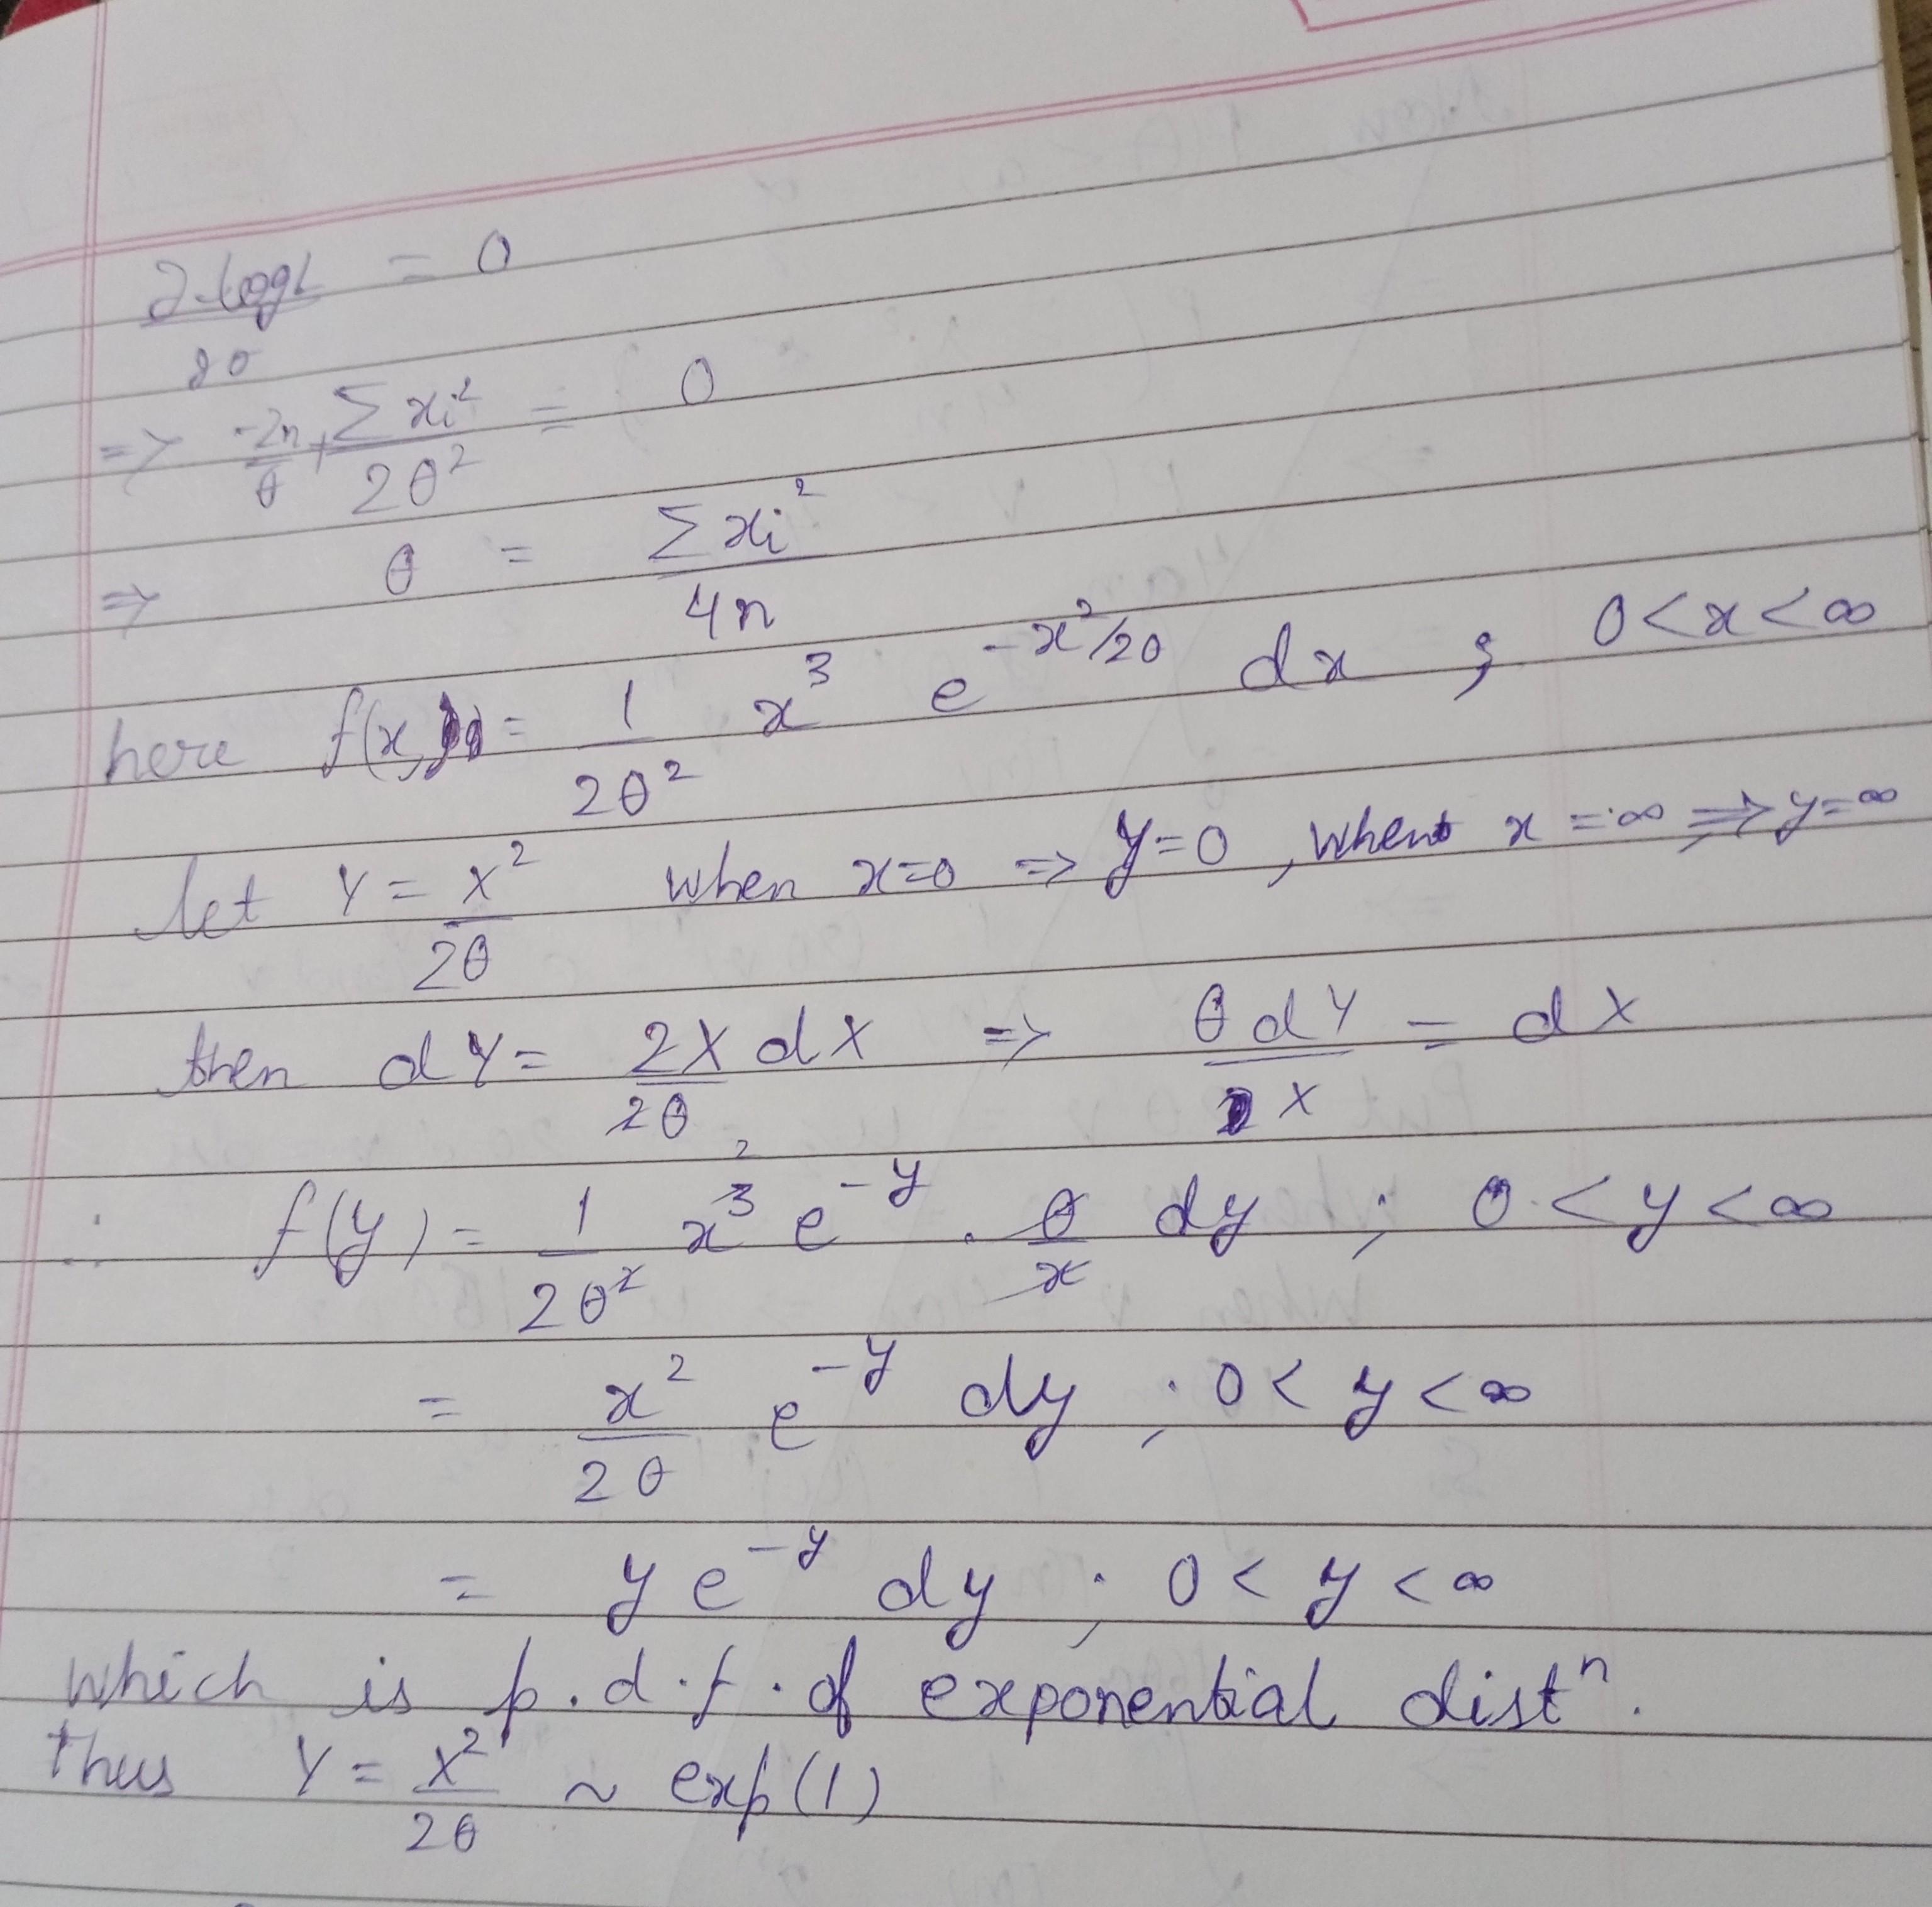 ∂ log L / ∂θ = 0
=> -2n/θ + Σxi²/2θ² = 0
=> θ = Σxi²/4n
here f(x, = 1/2θ² x³ e^(-x²/2θ) dx ; 0<x<∞
let Y = X²/2θ when x=0 => y=0, when x=∞ => y=∞
then dY = 2X/2θ dX => θdY/X = dX
∴ f(y) = 1/2θ² x³ e^(-y) . θ/x dy ; 0<y<∞
= x²/2θ e^(-y) dy ; 0<y<∞
= y e^(-y) dy ; 0<y<∞
which is p.d.f. of exponential distⁿ.
thus Y = X²/2θ ~ exp(1)